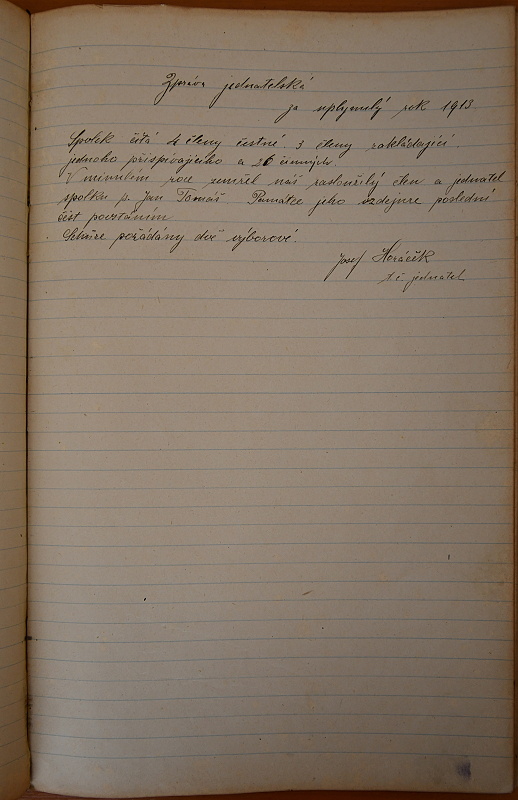 Zpráva jednatelská
za uplynulý rok 1913
Spolek čítá 4 členy čestné, 3 členy zakládající,
jednoho přispívajícího a 26 činných.
V minulém roce zemřel náš zasloužilý člen a jednatel
spolku p. Jan Tomáš. Památce jeho vzdejme poslední
čest povstáním
Schůze pořádány dvě výborové.
Josef Horáček
t. č. jednatel